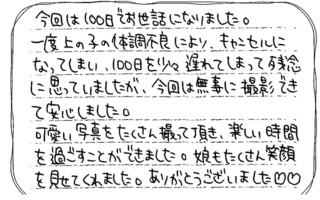 今回は100日でお世話になりました。
一度上の子の体調不良により、キャンセルに
なってしまい、100日を少々遅れてしまって残念
に思っていましたが、今回は無事に撮影でき
て安心しました。
可愛い写真をたくさん撮って頂き、楽しい時間
を過ごすことができました。娘もたくさん笑顔
を見せてくれました。ありがとうございました♡♡